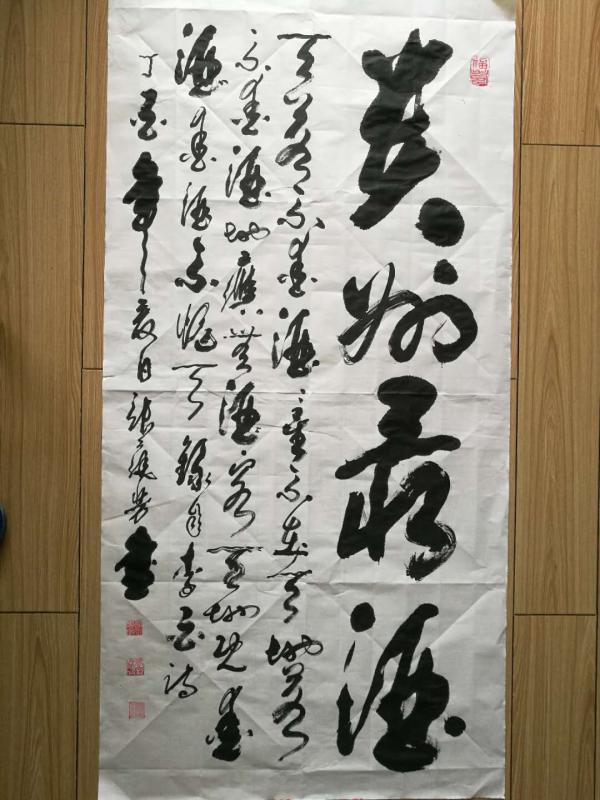 贵州最酒
天若不爱酒星不在天地若
不爱酒地应无酒客天地既爱
酒爱酒不愧天録自李白诗
丁酉年夏日张芳书